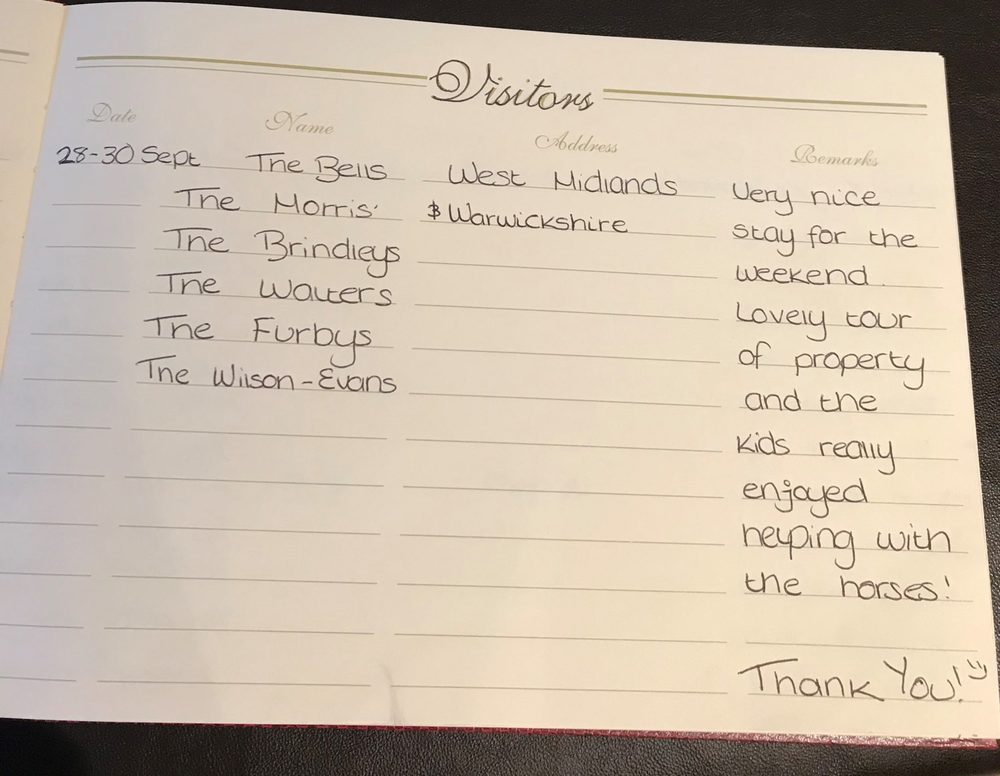 Visitors
Date Name Address Remarks
28-30 Sept The Bells West Midlands Very nice
The Morris' & Warwickshire stay for the
The Brindleys weekend.
The Walters Lovely tour
The Furbys of property
The Wilson-Evans and the
kids really
enjoyed
helping with
the horses!
Thank You! :)